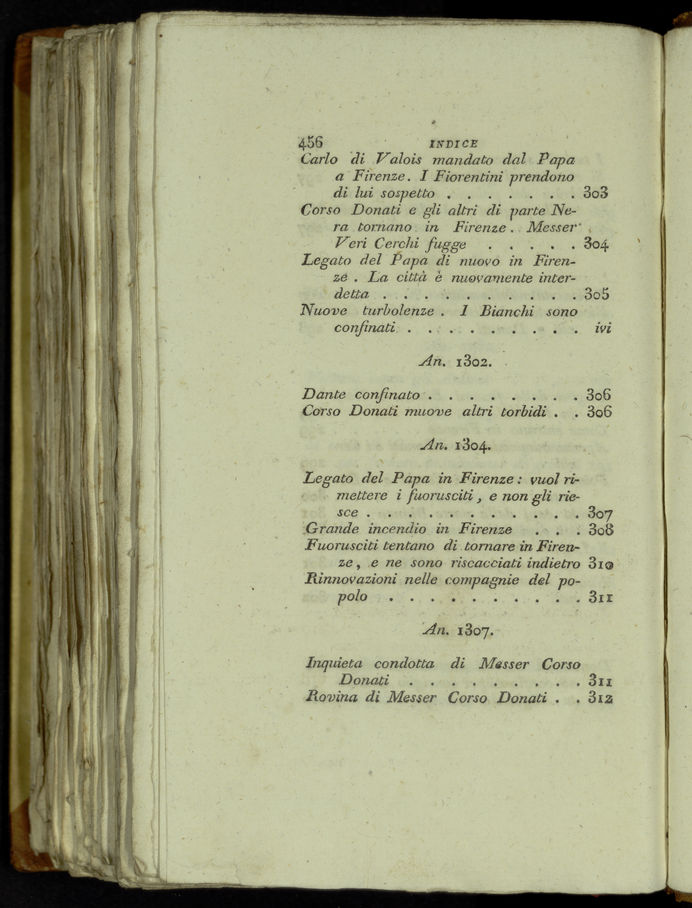 456 INDICE
Carlo di Valois mandato dal Papa
a Firenze. I Fiorentini prendono
di lui sospetto . . . . . . . 303
Corso Donati e gli altri di parte Ne-
ra tornano in Firenze. Messer
Veri Cerchi fugge . . . . . 304
Legato del Papa di nuovo in Firen-
ze . La città è nuovamente inter-
detta . . . . . . . . . . 305
Nuove turbolenze . I Bianchi sono
confinati . . . . . . . . . ivi
An. 1302.
Dante confinato . . . . . . . . 306
Corso Donati muove altri torbidi . . 306
An. 1304.
Legato del Papa in Firenze: vuol ri-
mettere i fuorusciti, e non gli rie-
sce . . . . . . . . . . . 307
Grande incendio in Firenze . . . 308
Fuorusciti tentano di tornare in Firen-
ze, e ne sono riscacciati indietro 310
Rinnovazioni nelle compagnie del po-
polo . . . . . . . . . . 311
An. 1307.
Inquieta condotta di Messer Corso
Donati . . . . . . . . . 311
Rovina di Messer Corso Donati . . 312